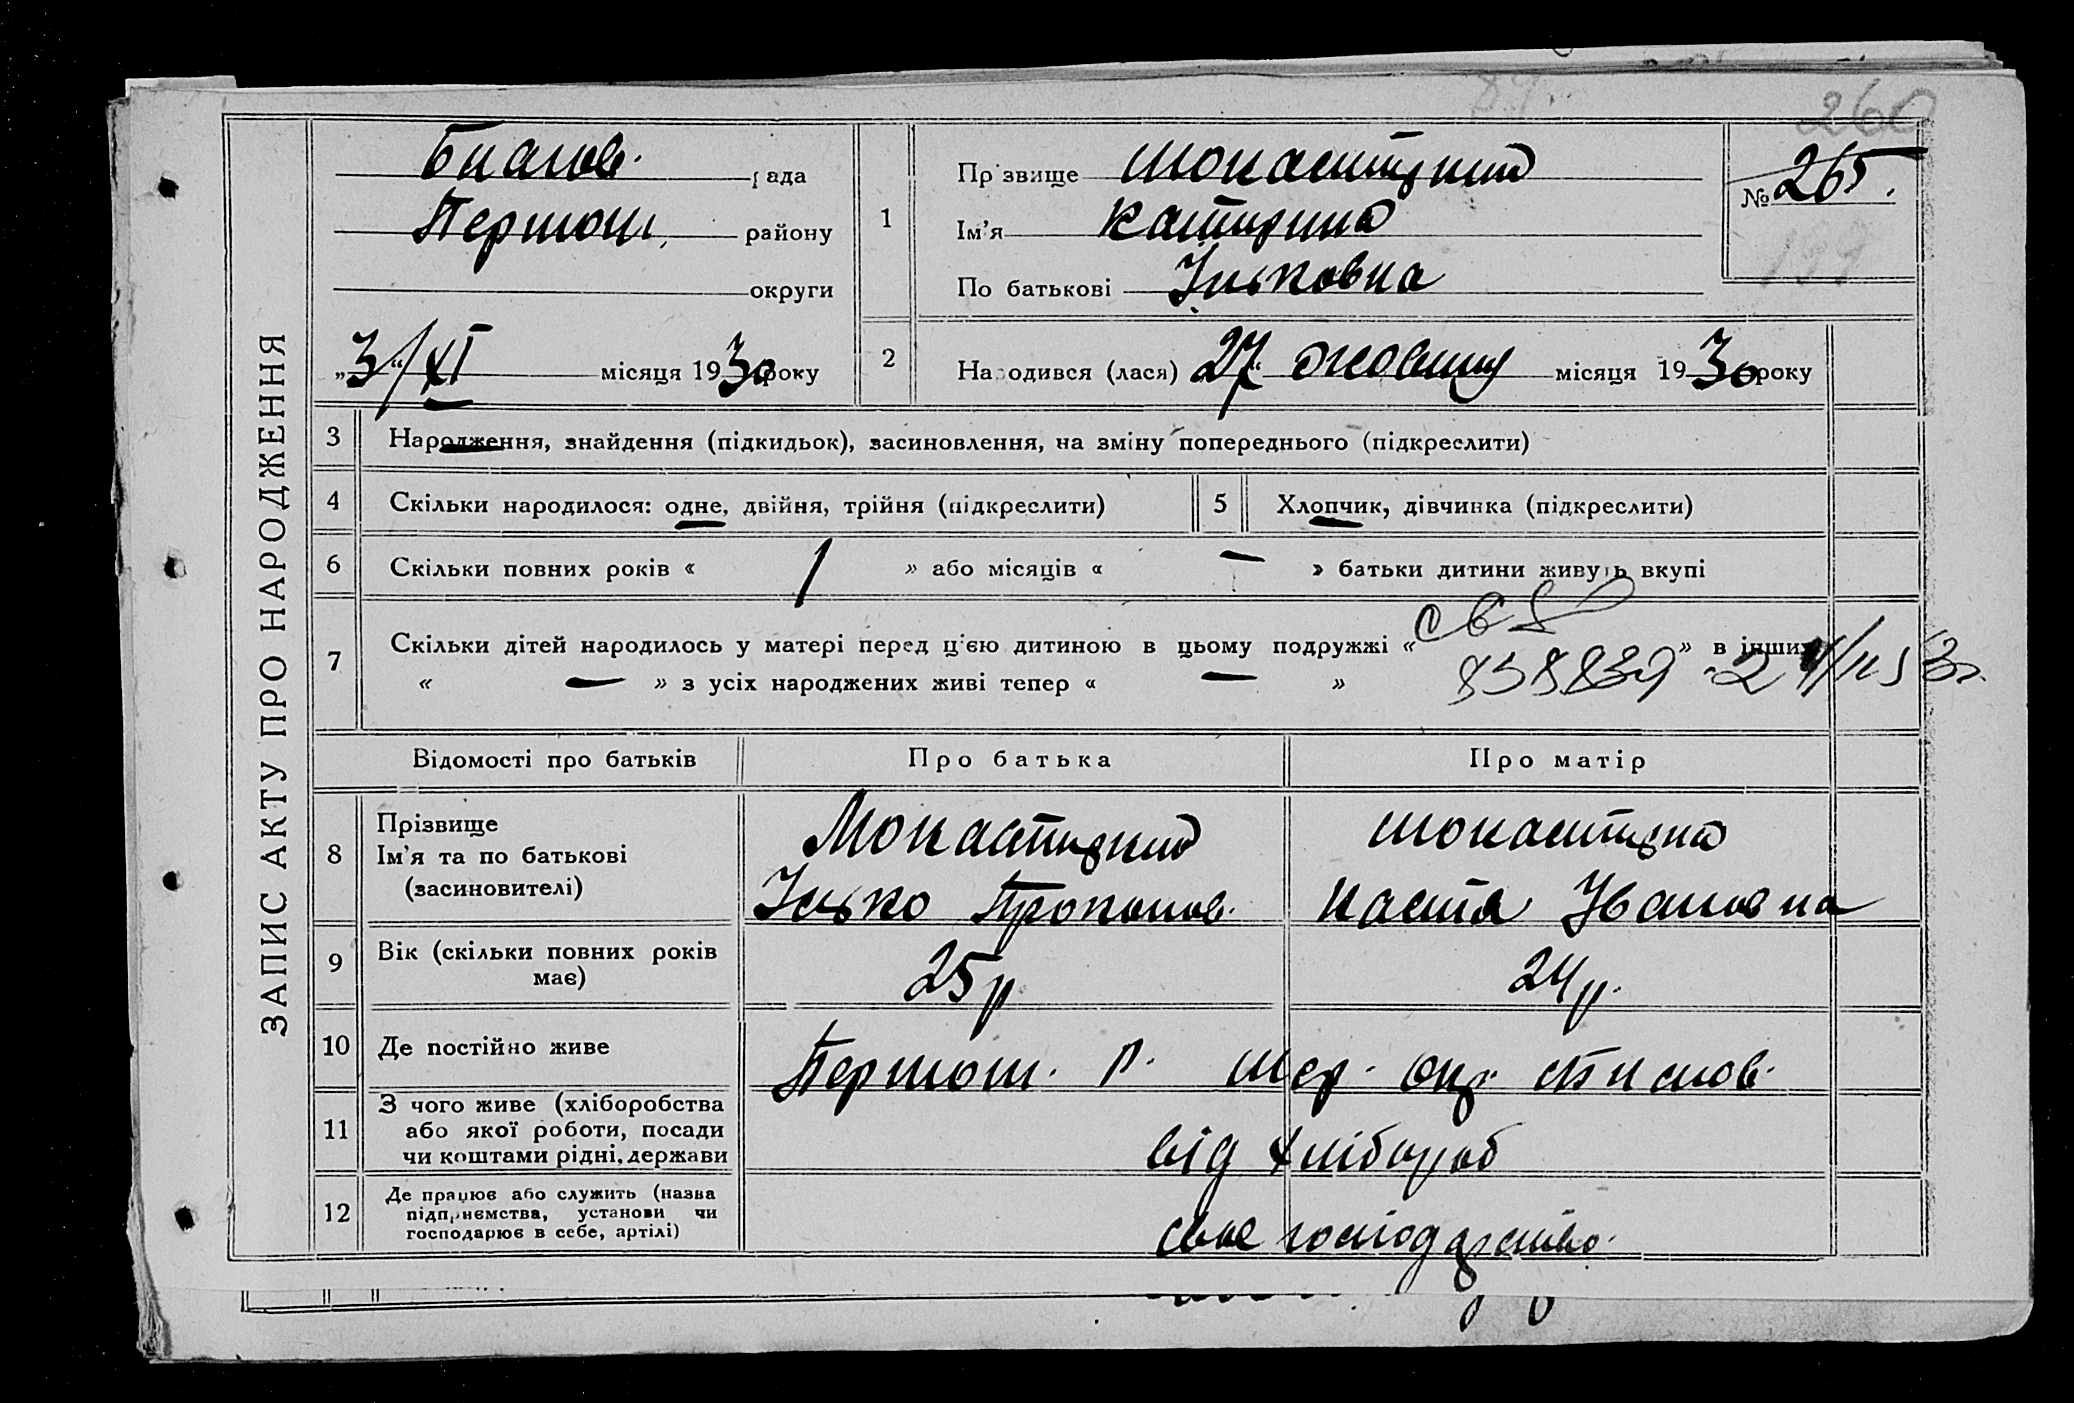 260
№ 265.
ЗАПИС АКТУ ПРО НАРОДЖЕННЯ
рада
Першом. району
округи
„3“/XI місяця 1930 року
1
Прізвище Монастирний
Ім'я Катирина
По батькові Ільковна
2
Народився (лася) 27 жовтня місяця 1930 року
3 Народження, знайдення (підкидьок), засиновлення, на зміну попереднього (підкреслити)
4 Скільки народилося: одне, двійня, трійня (підкреслити)
5 Хлопчик, дівчинка (підкреслити)
6 Скільки повних років « 1 » або місяців « — » батьки дитини живуть вкупі
7 Скільки дітей народилось у матері перед цією дитиною в цьому подружжі « » в інших
« — » з усіх народжених живі тепер « — »
Відомості про батьків Про батька Про матір
8 Прізвище
Ім'я та по батькові
(засиновителі)
Монастирний
Ілько Прокопов.
Монастирна
Настя Івановна
9 Вік (скільки повних років
має)
25 р. 24 р.
10 Де постійно живе
Першом. Р.
11 З чого живе (хліборобства
або якої роботи, посади
чи коштами рідні, держави
від хлібороб
12 Де працює або служить (назва
підприємства, установи чи
господарює в себе, артілі)
своє господарство.